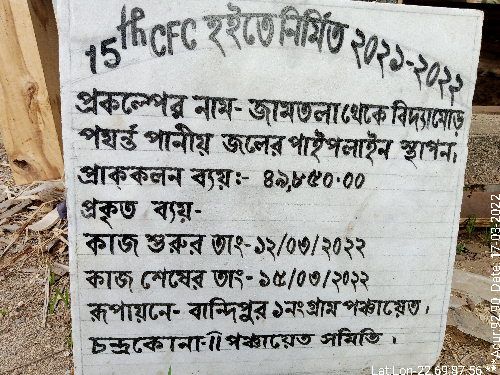 15th CFC হইতে নির্মিত ২০২১-২০২২
প্রকল্পের নাম- জামতলা থেকে বিদ্যামোড়
পযর্ন্ত পানীয় জলের পাইপলাইন স্থাপন।
প্রাক্কলন ব্যয়:- ৪৯,৮৫০.০০
প্রকৃত ব্যয়-
কাজ শুরুর তাং-১২/০৩/২০২২
কাজ শেষের তাং-১৫/০৩/২০২২
রূপায়নে- বান্দিপুর ১নং গ্রাম পঞ্চায়েত।
চন্দ্রকোনা-II পঞ্চায়েত সমিতি।
Date: 17-03-2022